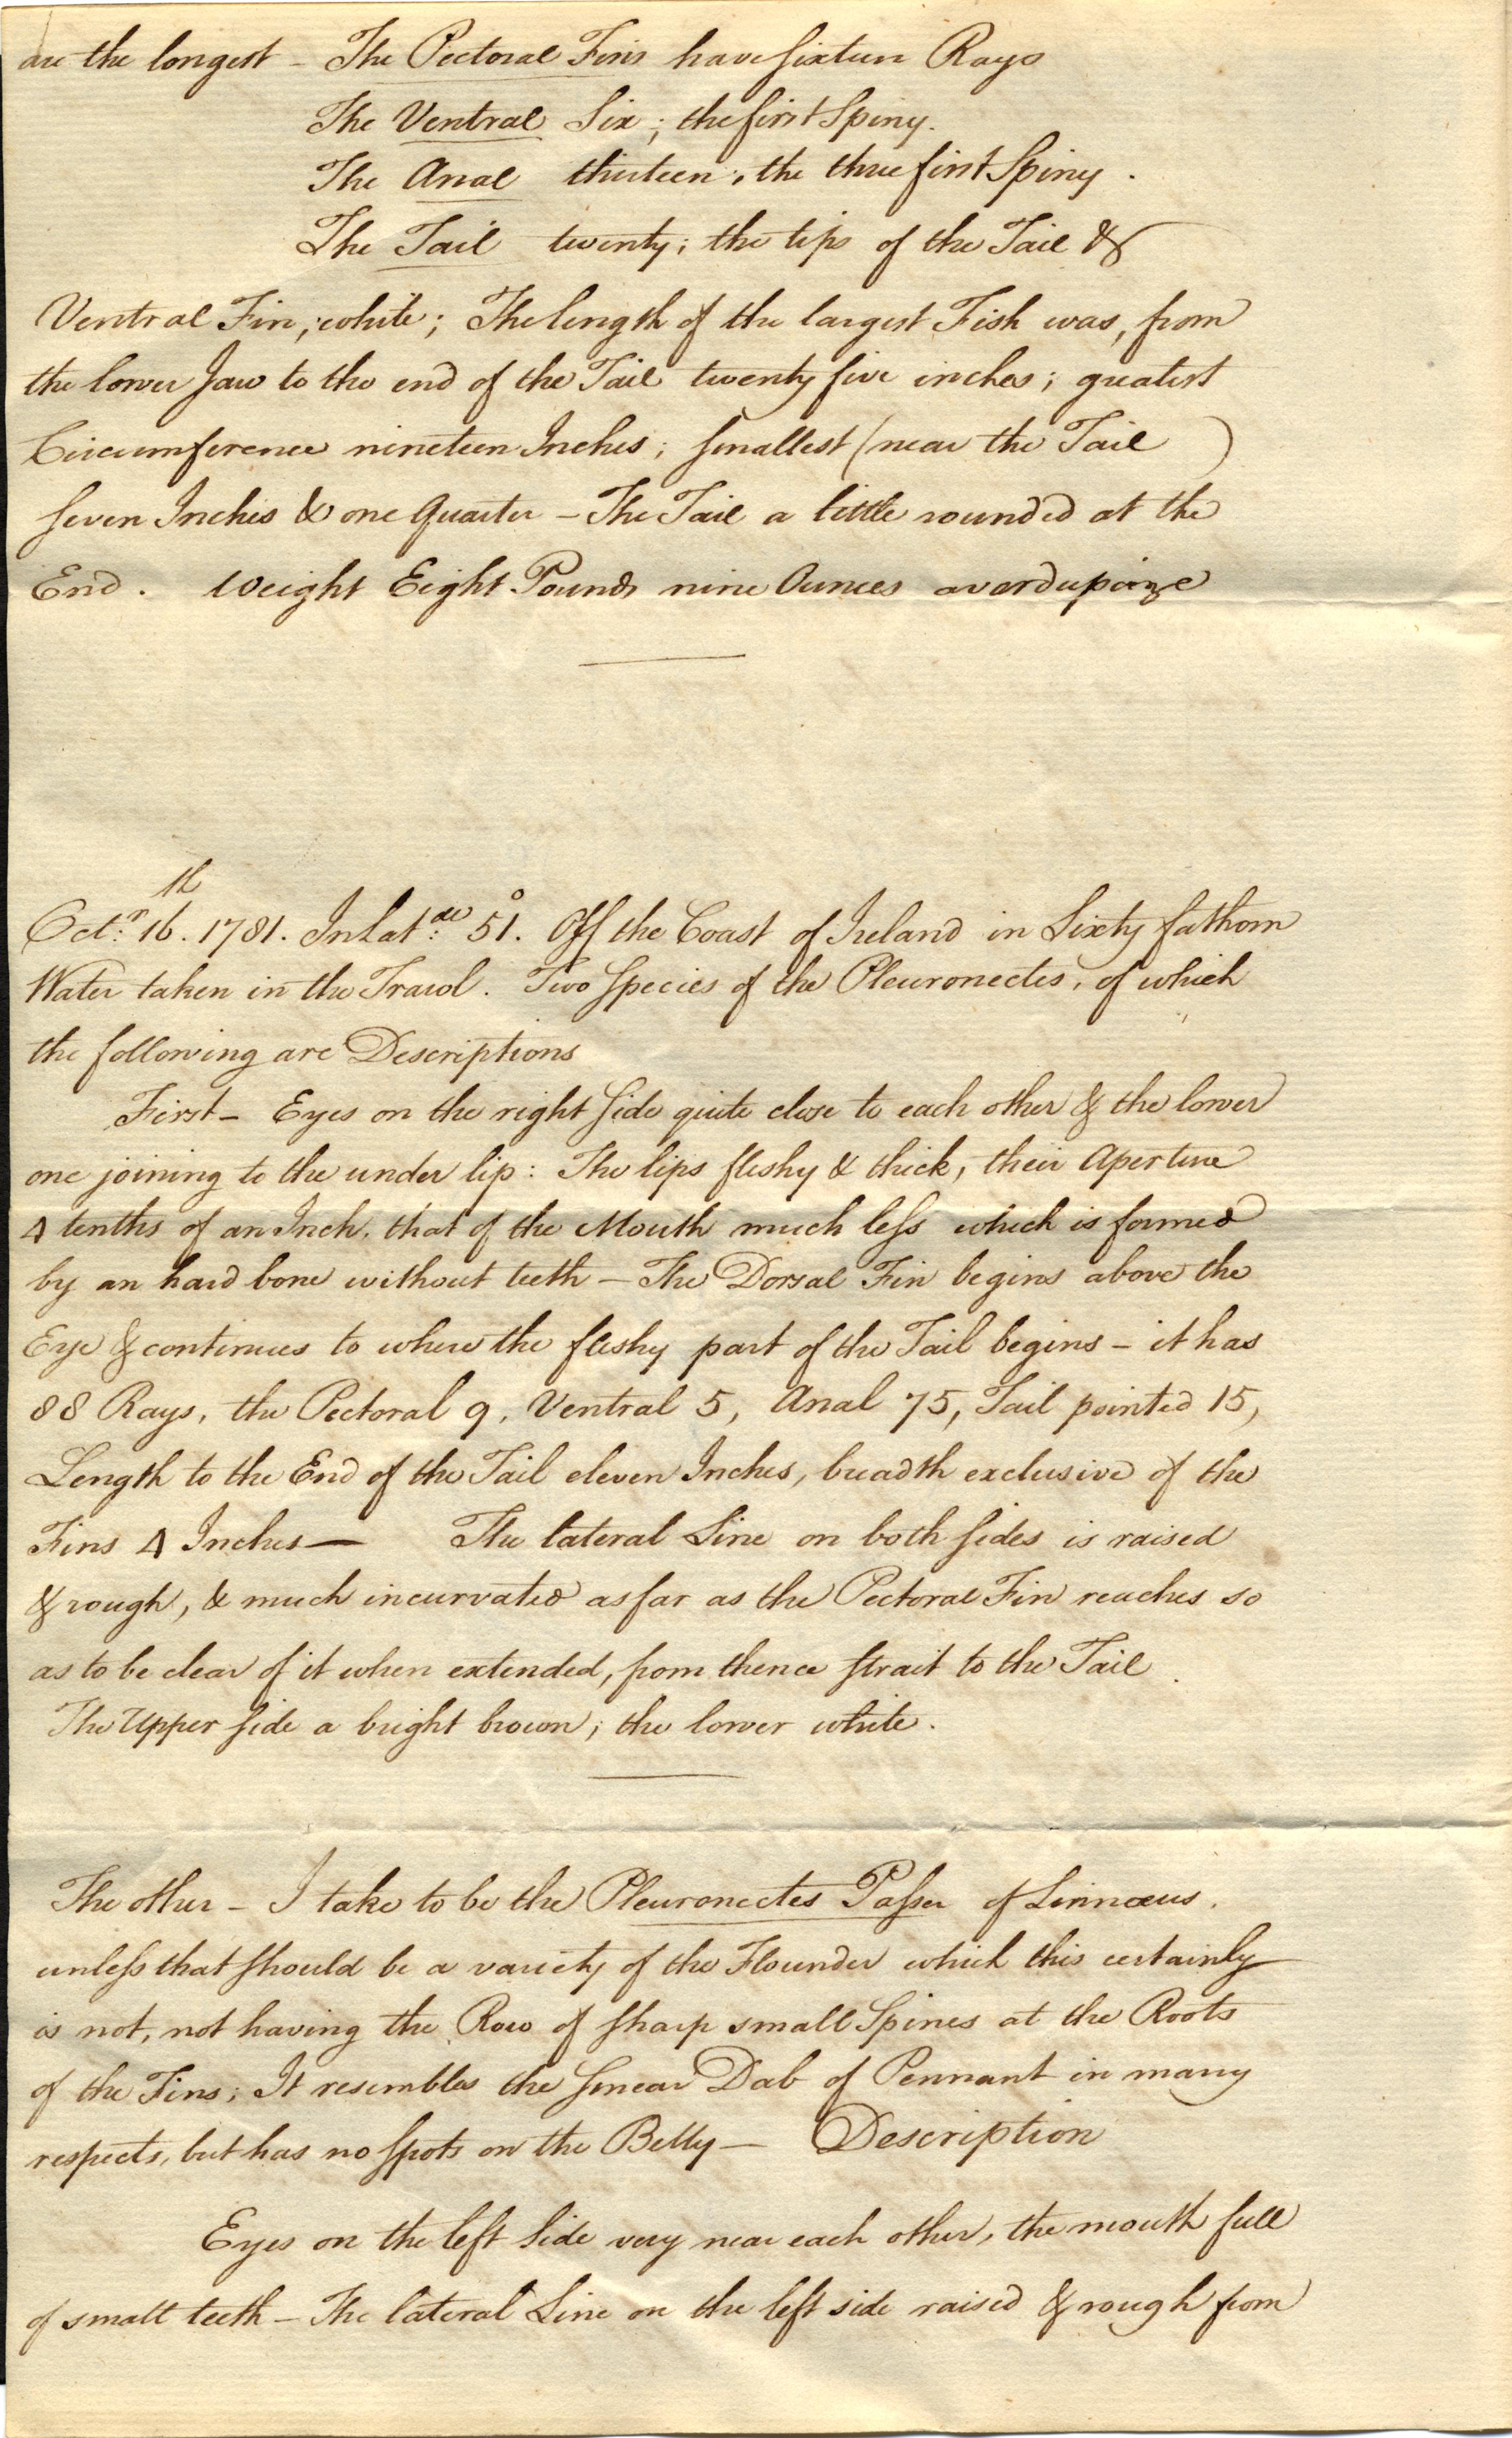 are the longest – The Pectoral Fins have sixteen Rays
The Ventral Six; the first Spiny.
The Anal thirteen, the three first Spiny.
The Tail twenty; the tips of the Tail &
Ventral Fin, white; The length of the largest Fish was, from
the lower Jaw to the end of the Tail twenty five inches; greatest
Circumference nineteen Inches; smallest (near the Tail)
seven Inches & one Quarter – The Tail a little rounded at the
End. Weight Eight Pounds nine Ounces averdupoize
Octr. 16th. 1781. In Latde. 51°. Off the Coast of Ireland in Sixty fathom
Water taken in the Trawl. Two Species of the Pleuronectes, of which
the following are Descriptions
First – Eyes on the right side quite close to each other & the lower
one joining to the under lip: The lips fleshy & thick, their Aperture
4 tenths of an Inch, that of the Mouth much less which is formed
by an hard bone without teeth – The Dorsal Fin begins above the
Eye & continues to where the fleshy part of the Tail begins – it has
88 Rays, the Pectoral 9, Ventral 5, Anal 75, Tail pointed 15,
Length to the End of the Tail eleven Inches, breadth exclusive of the
Fins 4 Inches — The lateral Line on both sides is raised
& rough, & much incurvated as far as the Pectoral Fin reaches so
as to be clear of it when extended, from thence strait to the Tail.
The Upper side a bright brown; the lower white.
The other – I take to be the Pleuronectes Passer of Linnæus.
unless that should be a variety of the Flounder which this certainly
is not, not having the Row of sharp small Spines at the Roots
of the Fins; It resembles the smear Dab of Pennant in many
respects, but has no spots on the Belly — Description
Eyes on the left side very near each other, the mouth full
of small teeth – The lateral Line on the left side raised & rough from